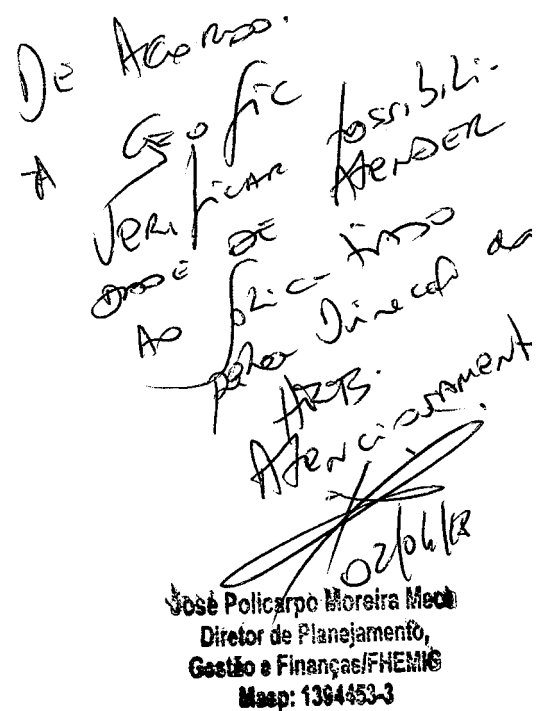 De Acordo.
A Geofic
Verificar possibili-
dade de Atender
Ao solicitado
pela Direção do
HRB.
Atenciosament
02/04/18
José Policarpo Moreira
Diretor de Planejamento,
Gestão e Finanças/FHEMIG
Masp: 1394453-3